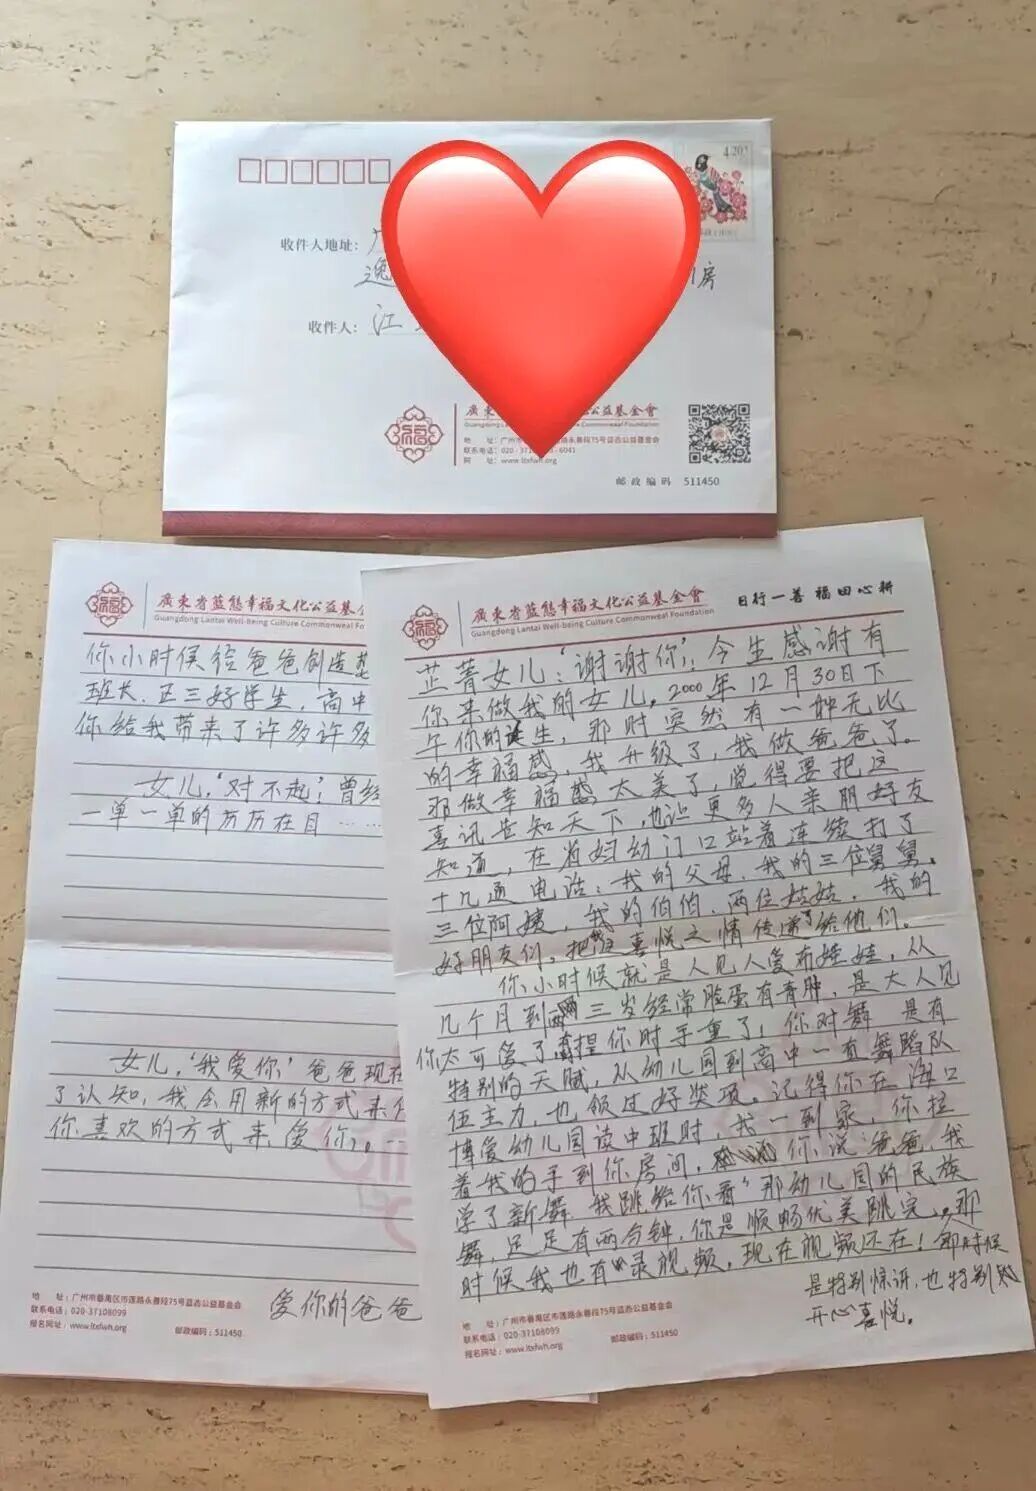 4.20
收件人地址: 广
逸
房
收件人: 江
廣東
公益基金會
Guangdong Lantai Well-being Culture Commonweal Foundation
地 址: 广州市
莲路永善段75号蓝态公益基金会
联系电话: 020-371
-6041
网 址: www.ltxfwh.org
邮政编码 511450
廣東省蓝態幸福文化公益基
Guangdong Lantai Well-being Culture Commonweal Fo
你小时候给爸爸创造
班长、区三好学生，高中
你给我带来了许多许多
女儿，‘对不起’！曾经
一单一单的历历在目……
女儿，‘我爱你’爸爸现在
了认知，我会用新的方式来
你喜欢的方式来爱你。
爱你的爸爸
地 址: 广州市番禺区市莲路永善段75号蓝态公益基金会
联系电话: 020-37108099
报名网址: www.ltxfwh.org 邮政编码: 511450
廣東省蓝態幸福文化公益基金會
Guangdong Lantai Well-being Culture Commonweal Foundation
日行一善 福田心耕
芷菁女儿：‘谢谢你’，今生感谢有
你来做我的女儿。2000年12月30日下
午你的诞生，那时突然有一种无比
的幸福感，我升级了，我做爸爸了。
那做幸福感太美了，觉得要把这
喜讯告知天下，也让更多人亲朋好友
知道，在省妇幼门口站着连续打了
十几通电话：我的父母、我的三位舅舅、
三位阿姨，我的伯伯、两位姑姑，我的
好朋友们。把这喜悦之情传递了给他们。
你小时候就是人见人爱布娃娃，从
几个月到三岁经常脸蛋有青肿，是大人见
你太可爱了捏你时手重了，你对舞是有
特别的天赋，从幼儿园到高中一直舞蹈队
伍主力，也领过好奖项。记得你在海口
博爱幼儿园读中班时，我一到家，你拉
着我的手到你房间，你说‘爸爸，我
学了新舞 我跳给你看’那幼儿园的民族
舞，足足有两分钟，你是顺畅优美跳完。那
时候我也有录视频，现在视频还在！那时候
是特别惊讶，也特别
开心喜悦。
地 址: 广州市番禺区市莲路永善段75号蓝态公益基金会
联系电话: 020-37108099
报名网址: www.ltxfwh.org 邮政编码: 511450